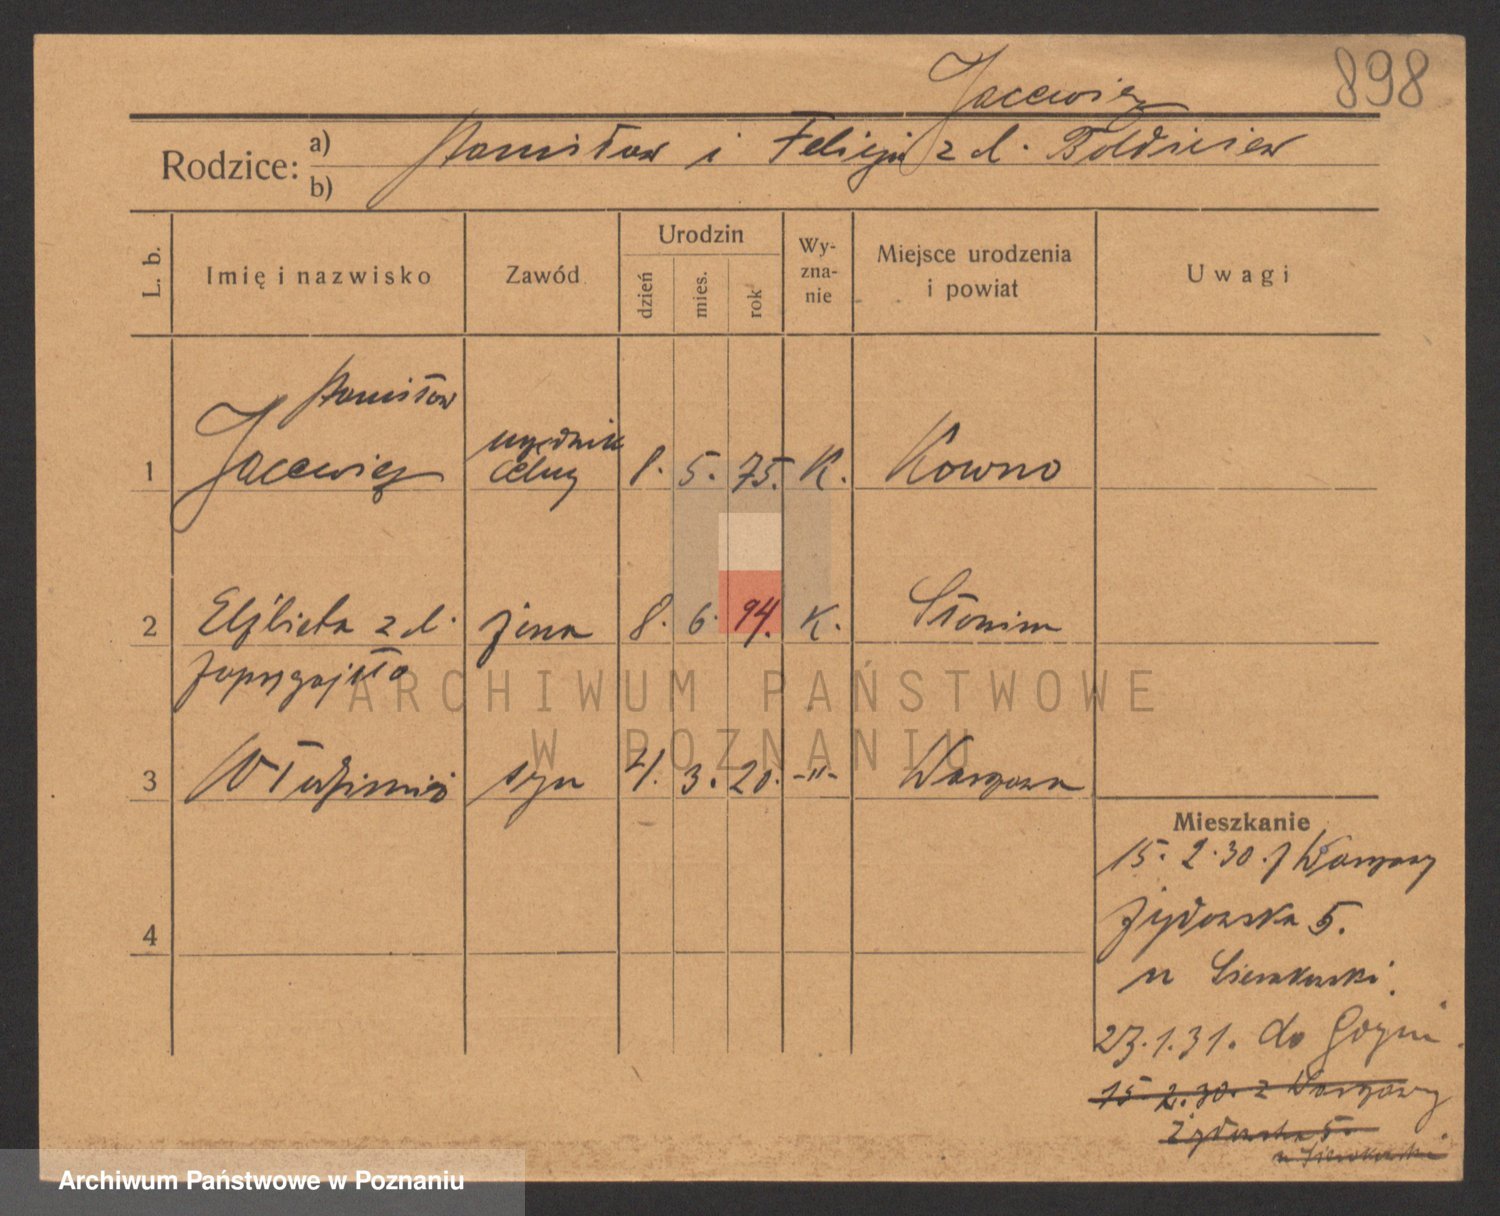 898
Jacewicz
Rodzice: a) Stanisław i Felicja z d.
b)
L. b. Imię i nazwisko Zawód Urodzin dzień mies. rok Wy-zna-nie Miejsce urodzenia i powiat Uwagi
Stanisław
1 Jacewicz urzędnik celny 8. 5. 75. K. Kowno
2 Elżbieta z d. żona 8. 6. 94. K. Słonim
3 Włodzimierz syn 4. 3. 20. -"- Warszawa
4
Mieszkanie
15. 2. 30. z Warszawy
Żydowska 5.
u Sierakowski.
23. 1. 31. do Gdyni.
15. 2. 30. z Warszawy
Żydowska 5.
u Sierakowski
ARCHIWUM PAŃSTWOWE
W POZNANIU
Archiwum Państwowe w Poznaniu